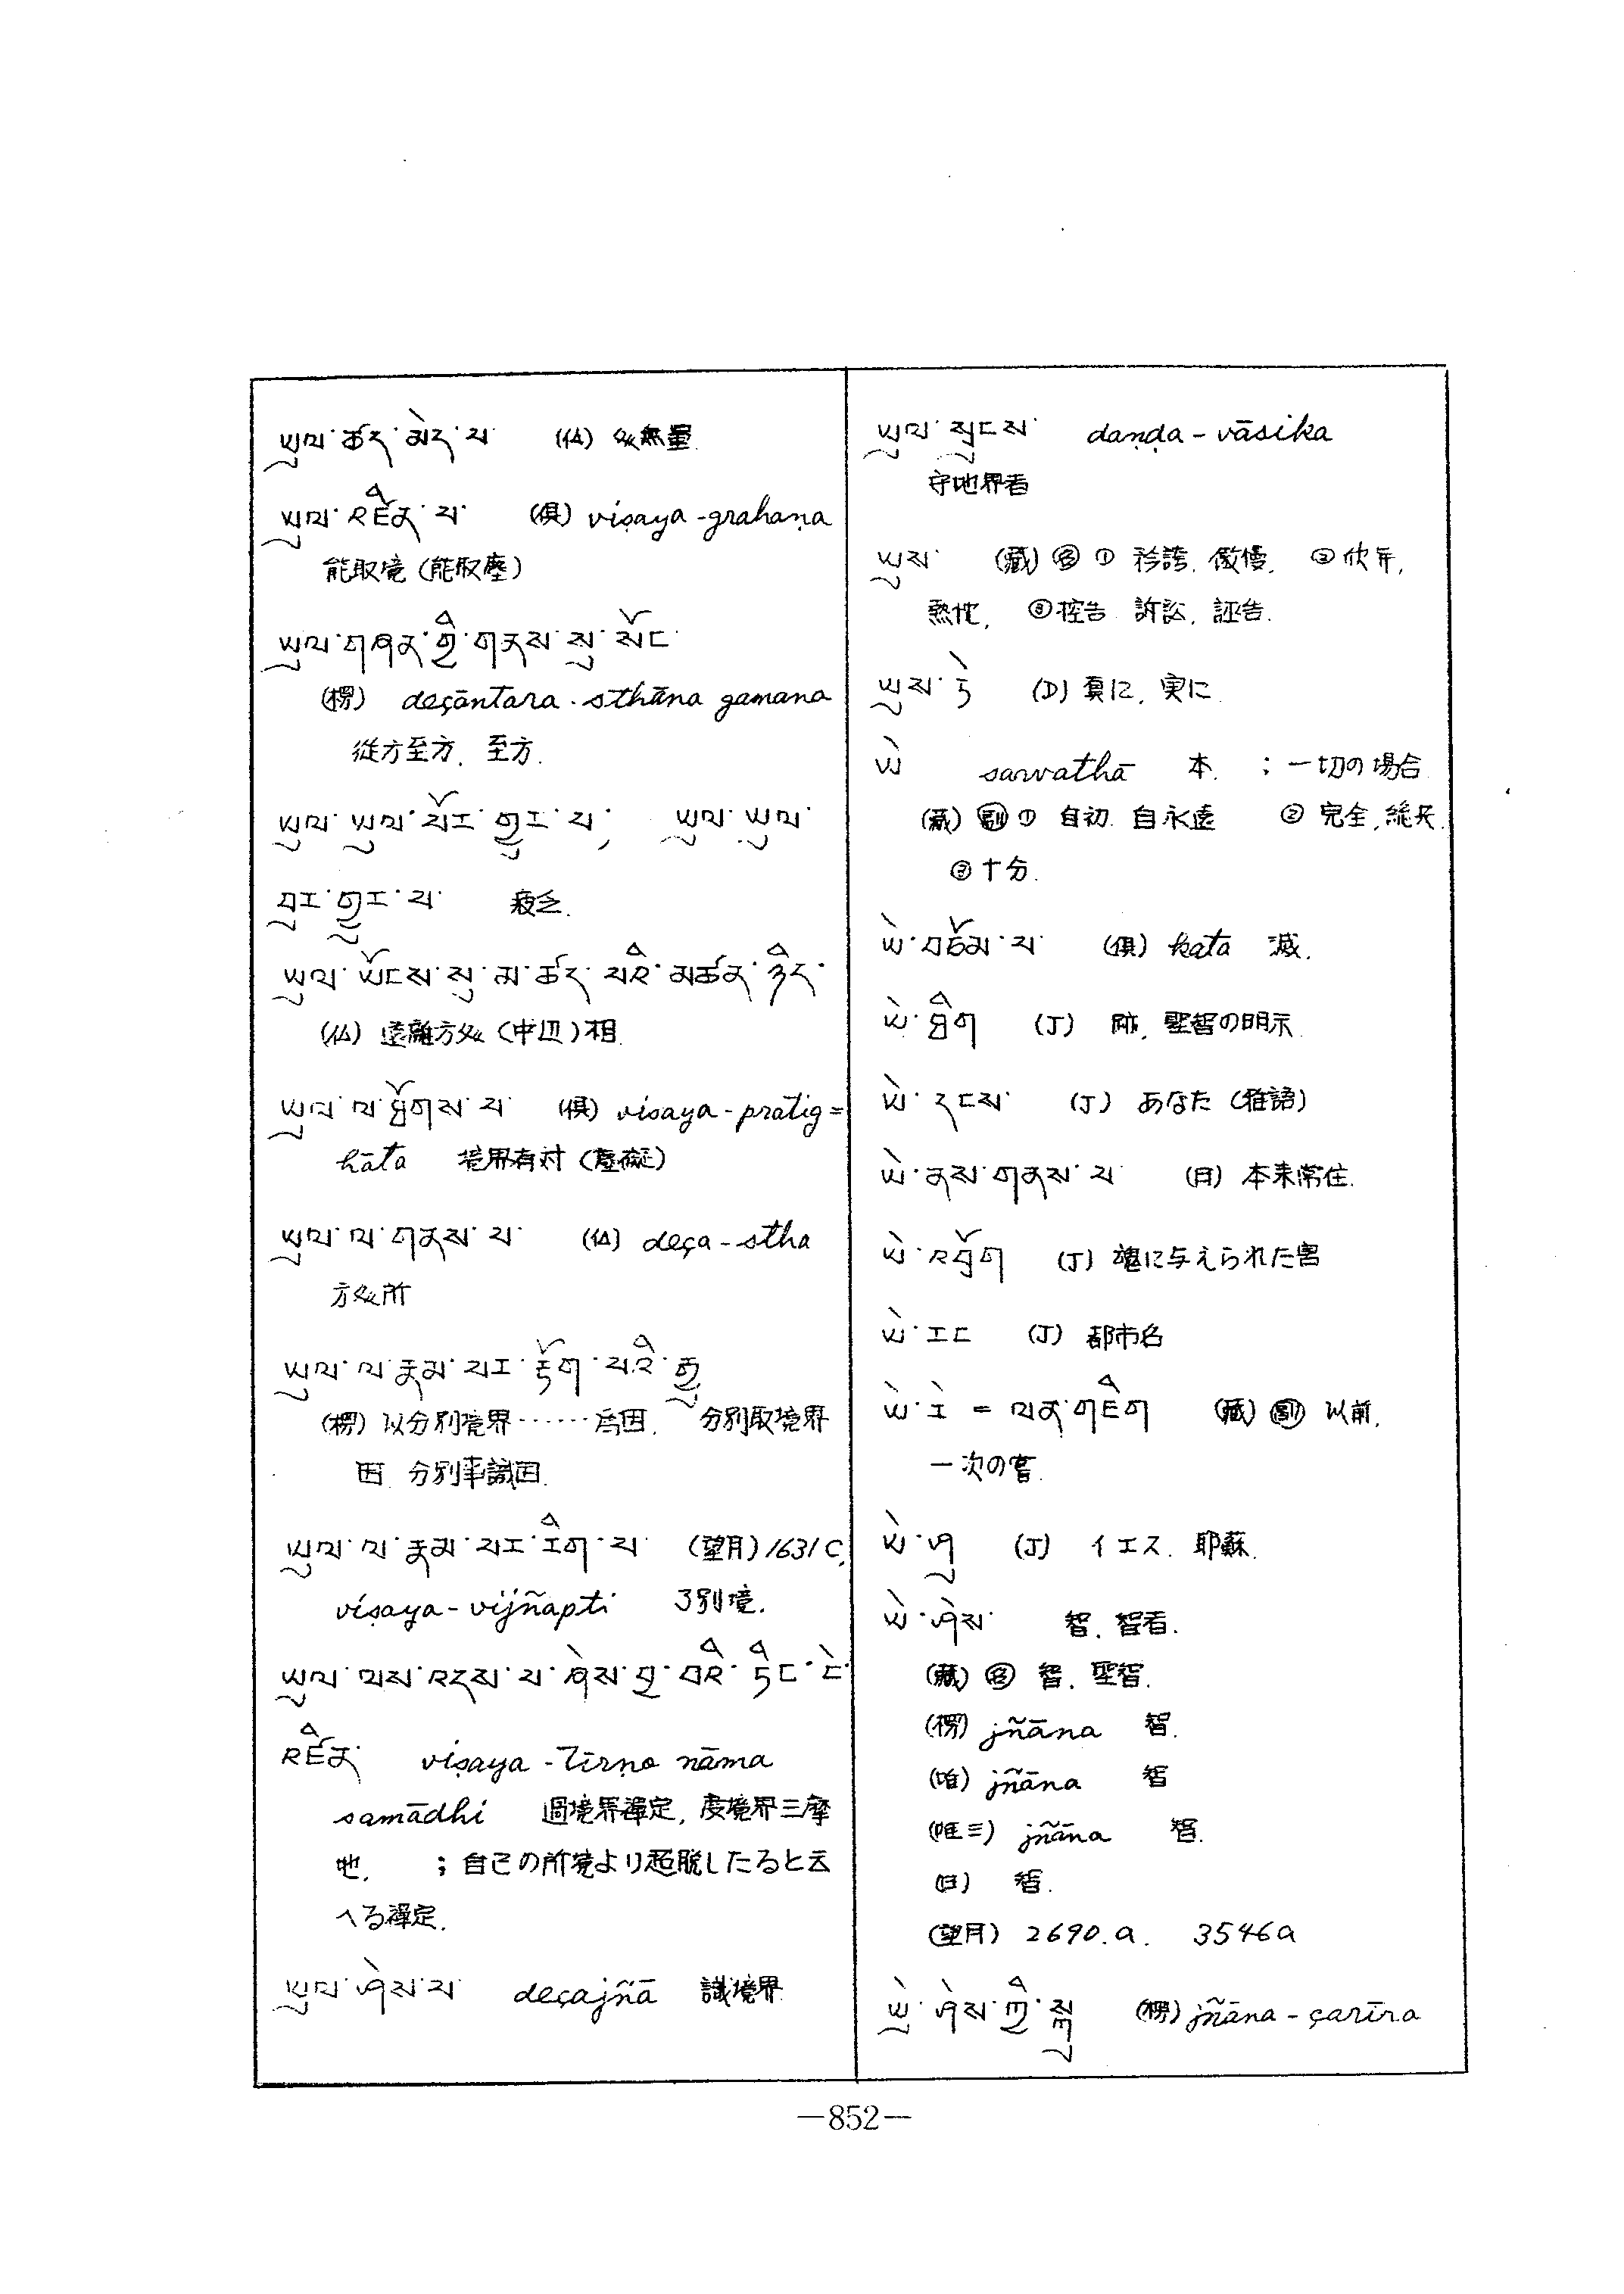 ཡུལ་ཚད་མེད་པ་ (仏) 処無量.
ཡུལ་འཛིན་པ་ (倶) viṣaya-grahaṇa
能取境 (能取塵)
ཡུལ་གཞན་གྱི་གནས་སུ་སོང་
(楞) deçāntara-sthāna gamana
從方至方. 至方.
ཡུལ་ཡུལ་པོར་གྱུར་པ་, ཡུལ་ཡུལ་
བུར་གྱུར་པ་ 疲乏.
ཡུལ་ཡོངས་སུ་མ་ཚད་པའི་མཚན་ཉིད་
(仏) 遠離方処 (中辺) 相.
ཡུལ་ལ་ཐོགས་པ་ (倶) visaya-pratig=
hāta 境界有対 (塵礙)
ཡུལ་ལ་གནས་པ་ (仏) deça-stha
方処所
ཡུལ་ལ་རྣམ་པར་རྟོག་པའི་རྒྱུ
(楞) 以分別境界……為因. 分別取境界
因. 分別事識因.
ཡུལ་ལ་རྣམ་པར་རིག་པ་ (望月) 1631 C,
viṣaya-vijñapti 了別境.
ཡུལ་ལས་འདས་པ་ཞེས་བྱ་བའི་ཏིང་ངེ་
འཛིན་ viṣaya-tīrṇo nāma
samādhi 過境界禅定, 度境界三摩
地. ; 自己の所境より超脱したると云
へる禅定.
ཡུལ་ཤེས་པ་ deçajñā 識境界
ཡུལ་སྲུངས་ daṇḍa-vāsika
守地界者
ཡུས་ (蔵) 名 ① 矜誇. 傲慢. ② 欣弁,
熱忱, ③ 控告 訴訟, 誣告.
ཡུས་ཏེ (D) 真に. 実に.
ཡེ sarvathā 本. ; 一切の場合
(蔵) 副 ① 自初. 自永遠 ② 完全, 総矢.
③ 十分.
ཡེ་བཅོམ་པ་ (倶) hata 滅.
ཡེ་ཐིག (J) 跡. 聖智の明示.
ཡེ་དངས་ (J) あなた (雅語)
ཡེ་ནས་གནས་པ་ (月) 本来常住.
ཡེ་འབྲོག (J) 魂に与えられた害
ཡེ་རང (J) 都市名
ཡེ་རེ = ལན་གཅིག (蔵) 副 以前.
一次の嘗.
ཡེ་ཤུ (J) イエス. 耶蘇.
ཡེ་ཤེས་ 智. 智者.
(蔵) 名 智. 聖智.
(楞) jñāna 智.
(唯) jñāna 智
(唯三) jñāna 智.
(月) 智.
(望月) 2690.a. 3546a
ཡེ་ཤེས་ཀྱི་སྐུ (楞) jñāna-çarīra
—852—